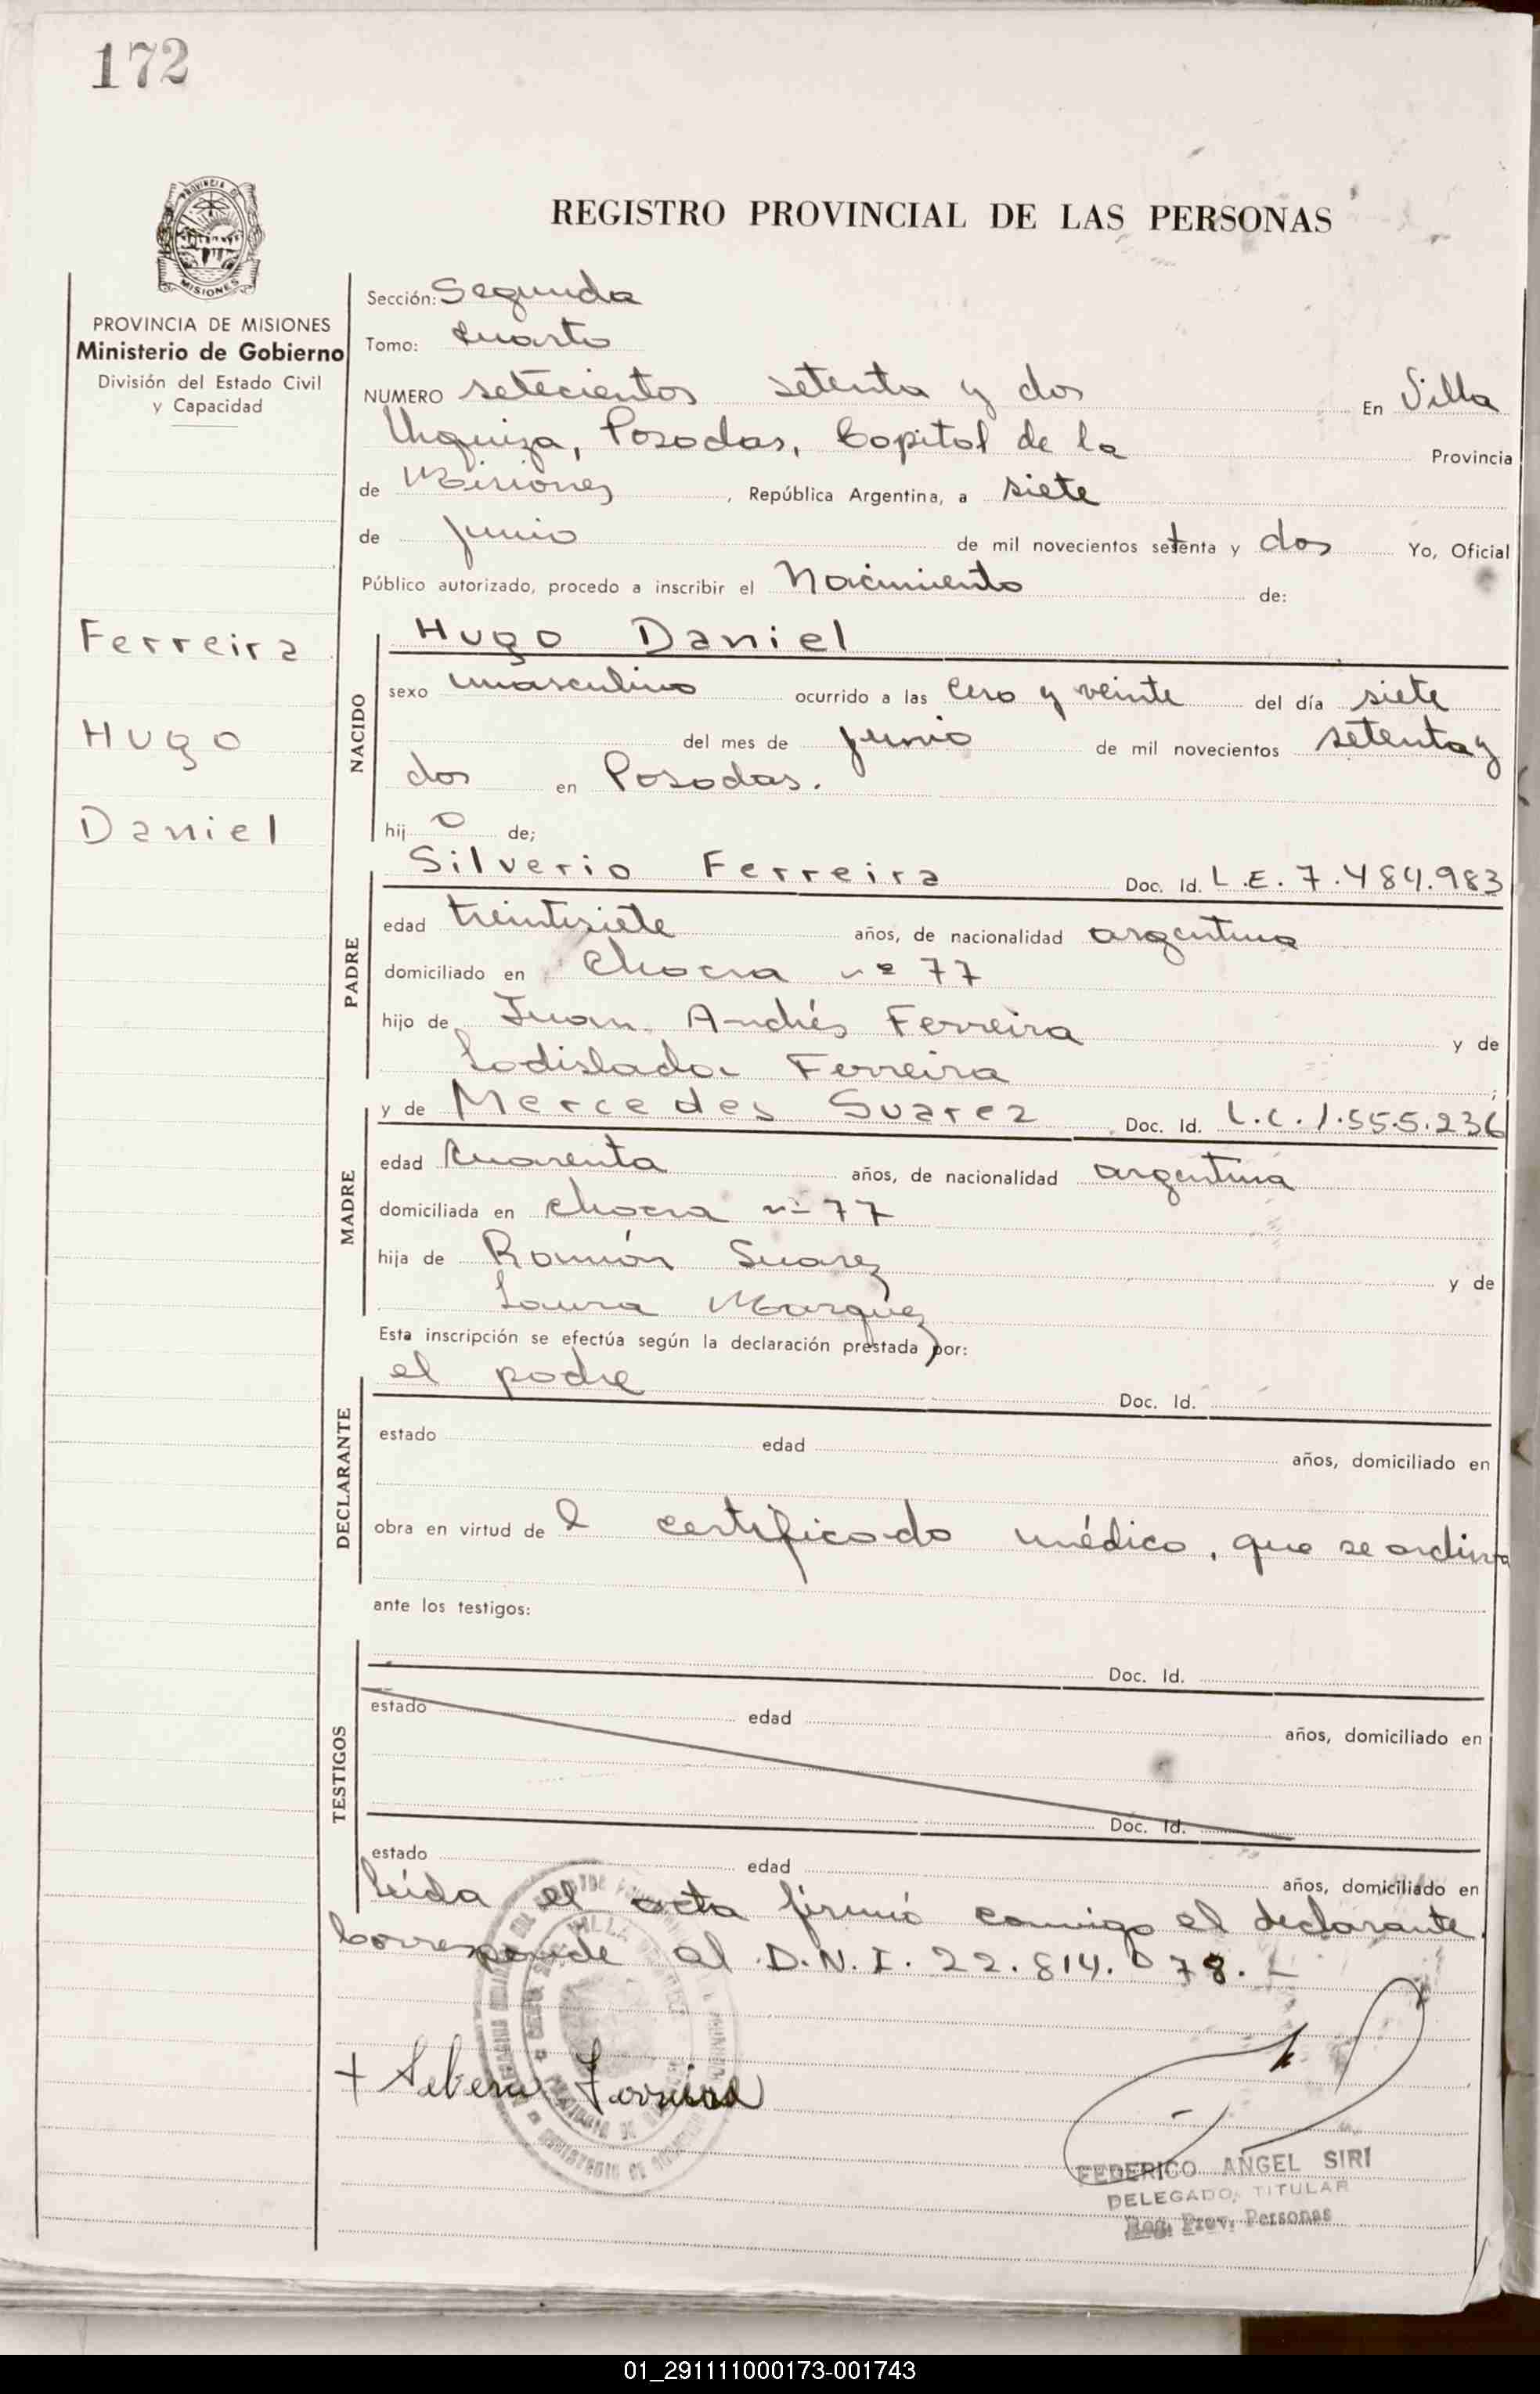 172
PROVINCIA DE MISIONES
Ministerio de Gobierno
División del Estado Civil
y Capacidad
Ferreira
Hugo
Daniel
REGISTRO PROVINCIAL DE LAS PERSONAS
Sección: Segunda
Tomo: cuarto
NUMERO setecientos setenta y dos En Villa
Urquiza, Posadas, Capital de la Provincia
de Misiones, República Argentina, a siete
de junio de mil novecientos setenta y dos Yo, Oficial
Público autorizado, procedo a inscribir el Nacimiento de:
NACIDO
Hugo Daniel
sexo masculino ocurrido a las cero y veinte del día siete
del mes de junio de mil novecientos setenta y
dos en Posadas.
hijo de;
PADRE
Silverio Ferreira Doc. Id. L.E. 7.484.983
edad treintisiete años, de nacionalidad argentina
domiciliado en Chacra nº 77
hijo de Juan Andrés Ferreira y de
Ladislada Ferreira;
MADRE
y de Mercedes Suarez Doc. Id. L.C. 1.555.236
edad cuarenta años, de nacionalidad argentina
domiciliada en chacra nº 77
hija de Ramón Suarez y de
Laura Marquez
Esta inscripción se efectúa según la declaración prestada por:
DECLARANTE
el padre Doc. Id.
estado edad años, domiciliado en
obra en virtud del certificado médico, que se archiva
ante los testigos:
TESTIGOS
Doc. Id.
estado edad años, domiciliado en
Doc. Id.
estado edad años, domiciliado en
Leída el acta firmó conmigo el declarante.
Corresponde al D.N.I. 22.814.078.-
Ferreira
FEDERICO ANGEL SIRI
DELEGADO TITULAR
Reg. Prov. Personas
01_291111000173-001743